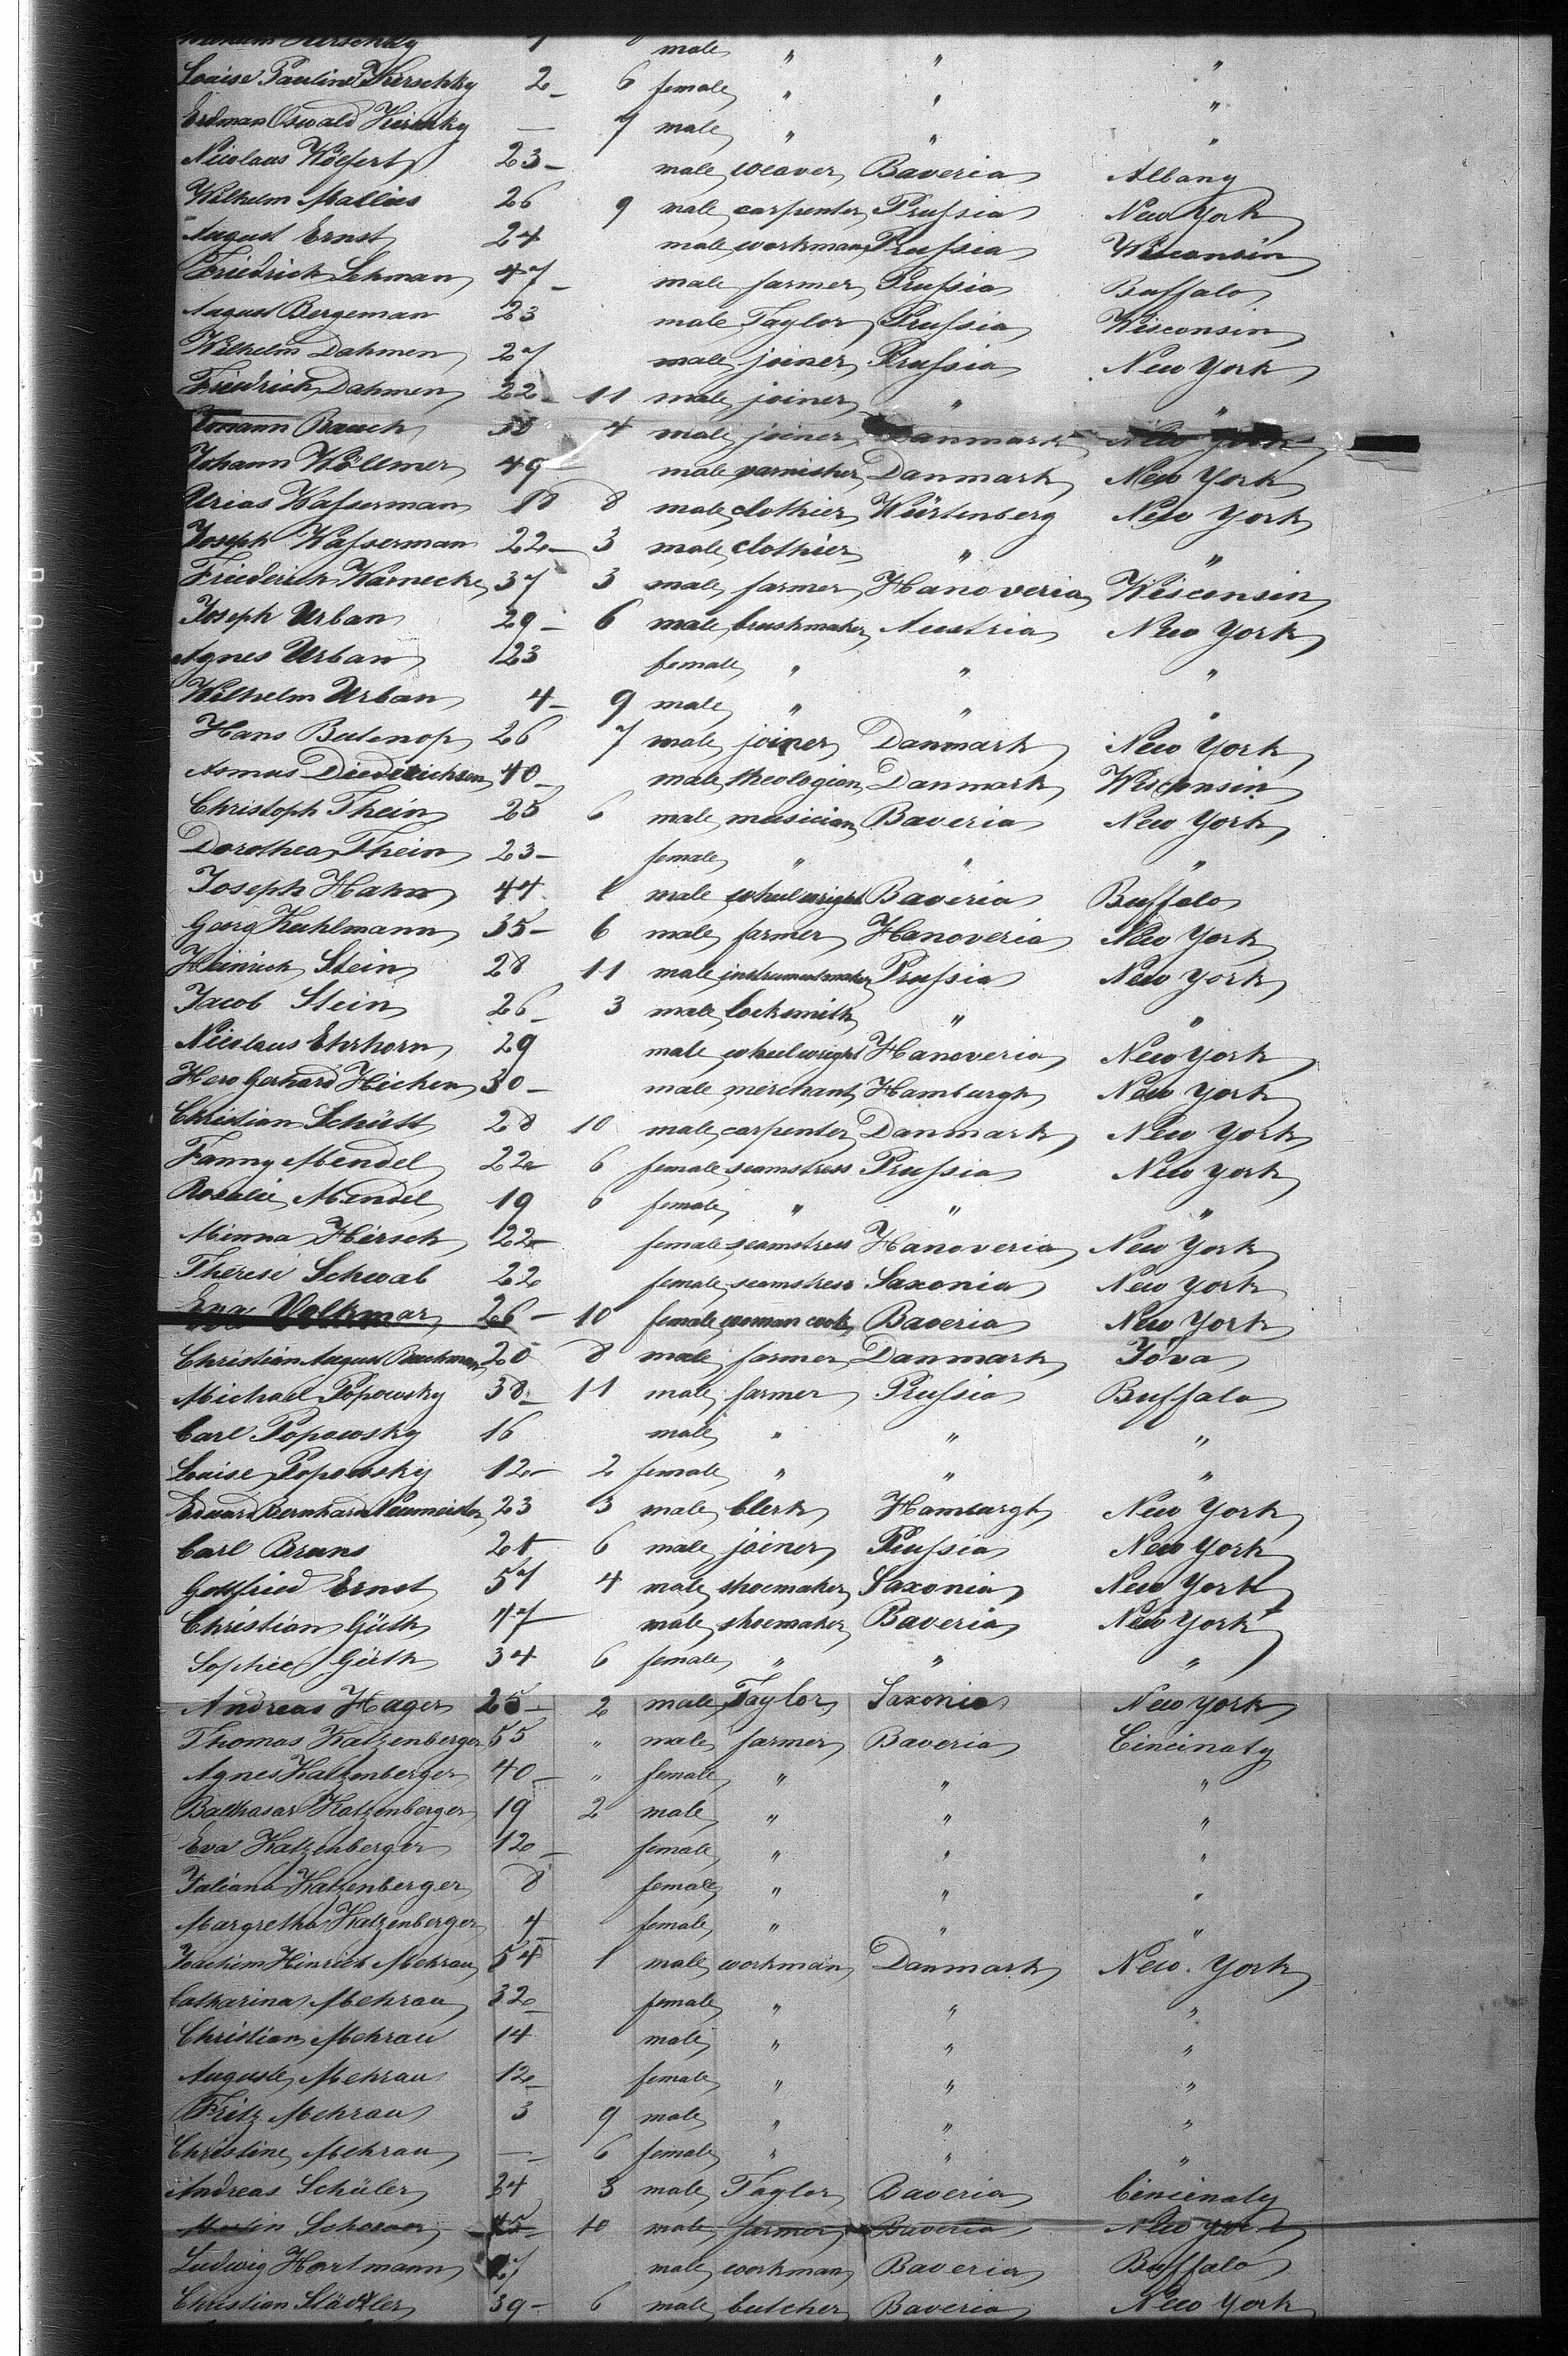 Kirschky male " " "
Louise Pauline Kirschky 2 6 female " " "
Erdman Oswald Kirschky — 9 male " " "
Nicolaus 23 male weaver Baveria Albany
Wilhelm Mallies 26 9 male carpenter Prussia New York
August Ernst 24 male workman Prussia Wisconsin
Friedrich Lehman 47 male farmer Prussia Buffalo
August Bergeman 23 male Taylor Prussia Wisconsin
Wilhelm Dahmen 27 male joiner Prussia New York
Friedrich Dahmen 22 11 male joiner " "
Bauch 4 male joiner Danmark New York
Johann Wöllmer 49 male varnisher Danmark New York
Urias Wasserman 18 8 male clothier Würtenberg New York
Joseph Wasserman 22 3 male clothier " "
Friederich Warnecke 37 3 male farmer Hanoveria Wisconsin
Joseph Urban 29 6 male brushmaker Austria New York
Agnes Urban 23 female " " "
Wilhelm Urban 4 9 male " " "
Hans Butenop 26 7 male joiner Danmark New York
Asmus Diederichsen 40 male theologian Danmark Wisconsin
Christoph Thein 25 6 male musician Baveria New York
Dorothea Thein 23 female " " "
Joseph Hahn 44 1 male wheelwright Baveria Buffalo
Georg Kuhlmann 35 6 male farmer Hanoveria New York
Heinrich Stein 28 11 male instrumentmaker Prussia New York
Jacob Stein 26 3 male locksmith " "
Nicolaus Ehrhorn 29 male wheelwright Hanoveria New York
Hero Gerhard Hicken 30 male merchant Hamburgh New York
Christian Schütt 28 10 male carpenter Danmark New York
Fanny Mendel 22 6 female seamstress Prussia New York
Rosalie Mendel 19 6 female " " "
Minna Hirsch 22 female seamstress Hanoveria New York
Therese Schwab 22 female seamstress Saxonia New York
Eva Volkmar 26 10 female woman cook Baveria New York
Christian August Bachman 28 8 male farmer Danmark Jova
Michael Popowsky 38 11 male farmer Prussia Buffalo
Carl Popowsky 16 male " " "
Louise Popowsky 12 2 female " " "
Eduard Bernhard Neumeister 23 3 male Clerk Hamburgh New York
Carl Bruns 6 male joiner Prussia New York
Gottfried Ernst 57 4 male shoemaker Saxonia New York
Christian Güth 47 male shoemaker Baveria New York
Sophie Güth 34 6 female " " "
Andreas Hager 25 2 male Taylor Saxonia New York
Thomas Katzenberger 55 " male farmer Baveria Cincinaty
Agnes Katzenberger 40 " female " " "
Balthasar Katzenberger 19 2 male " " "
Eva Katzenberger 12 female " " "
Juliana Katzenberger 8 female " " "
Margretha Katzenberger 4 female " " "
Joachim Hinrich Mehrau 54 1 male workman Danmark New York
Catharina Mehrau 32 female " " "
Christian Mehrau 14 male " " "
Auguste Mehrau 12 female " " "
Fritz Mehrau 3 9 male " " "
Christine Mehrau — 6 female " " "
Andreas Schüler 24 3 male Taylor Baveria Cincinaty
10 male farmer Baveria New York
Ludwig Hartmann male workman Baveria Buffalo
Christian Städtler 39 6 male butcher Baveria New York